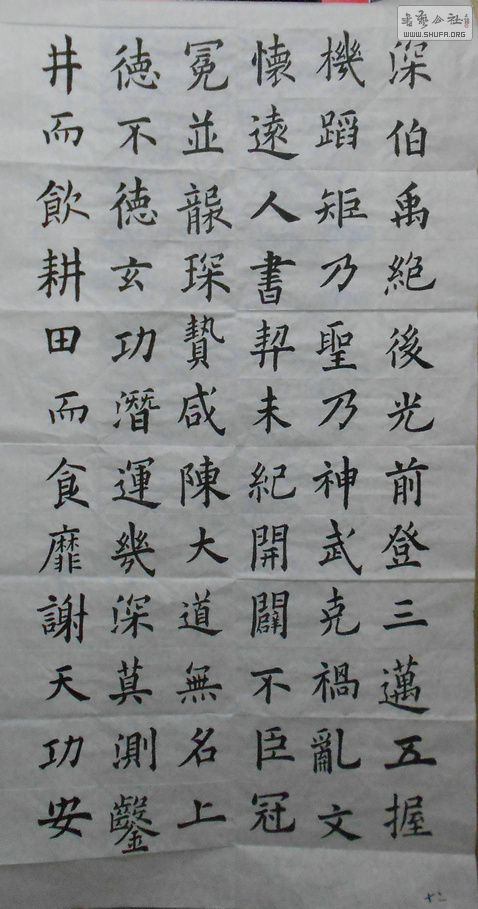 深伯禹絕後光前登三邁五握
機蹈矩乃聖乃神武克禍亂文
懷遠人書契未紀開闢不臣冠
冕並襲琛贄咸陳大道無名上
德不德玄功潛運幾深莫測鑿
井而飲耕田而食靡謝天功安
十二
書藝公社
WWW.SHUFA.ORG